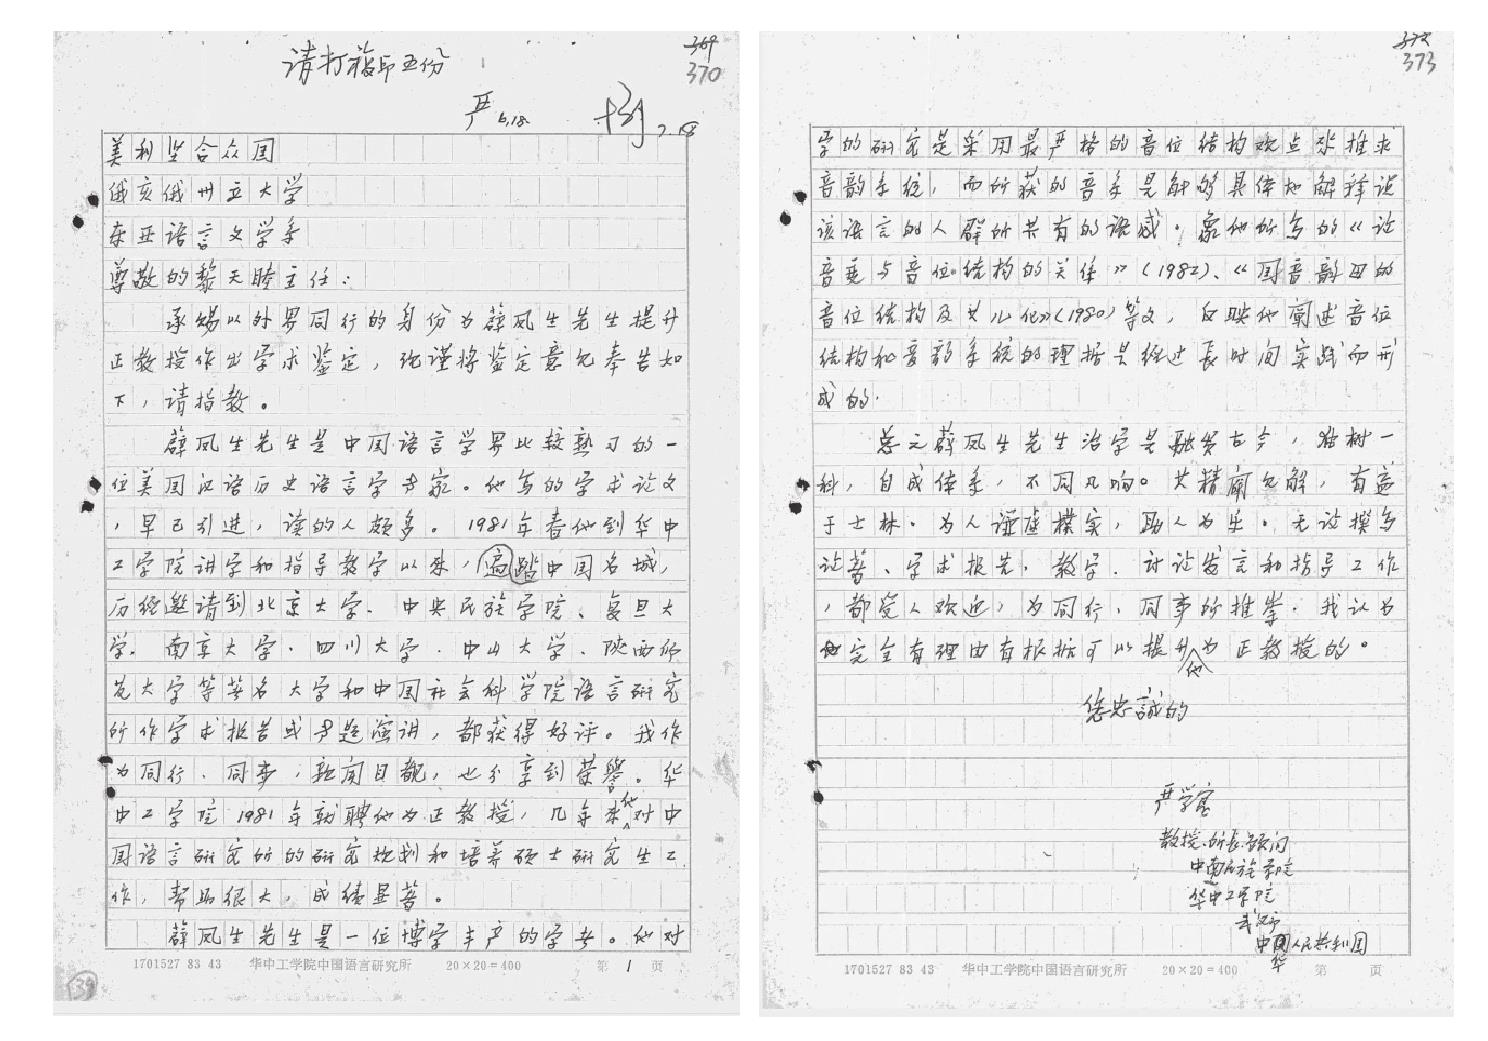 请打複印五份
369
370
严 6.18
7.18
美利坚合众国
俄亥俄州立大学
东亚语言文学系
尊敬的黎天睦主任：
承赐以外界同行的身份为薛凤生先生提升
正教授作出学术鉴定，纯谨将鉴定意见奉告如
下，请指教。
薛凤生先生是中国语言学界比较熟习的一
位美国汉语历史语言学专家。他写的学术论文
，早已引进，读的人颇多。1981年春他到华中
工学院讲学和指导教学以来，遍踏中国名城，
历经邀请到北京大学、中央民族学院、复旦大
学、南京大学、四川大学、中山大学、陕西师
范大学等著名大学和中国社会科学院语言研究
所作学术报告或专题演讲，都获得好评。我作
为同行、同事，耿闻目覩，也分享到荣譽。华
中工学院1981年就聘他为正教授，几年来他对中
国语言研究所的研究规划和培养硕士研究生工
作，帮助很大，成绩显著。
薛凤生先生是一位博学丰产的学者。他对
1701527 83 43 华中工学院中国语言研究所 20×20=400 第 1 页
39
373
学的研究是采用最严格的音位结构观点来推求
音韵系统，而所获的音系是能够具体地解释说
该语言的人群所共有的语感。象他所写的《论
音变与音位结构的关系》(1982)、《国音韵母的
音位结构及其儿化》(1980)等文，反映他阐述音位
结构和音韵系统的理据是经过長时间实践而形
成的。
总之薛凤生先生治学是融贯古今，独树一
科，自成体系，不同凡响。其精阐见解，有益
于士林。为人谨虚樸实，助人为乐。无论撰写
论著、学术报告、教学、讨论发言和指导工作
，都受人欢迎，为同行、同事所推崇。我认为
完全有理由有根据可以提升他为正教授的。
您忠誠的
严学宭
教授、所长、顾问
中南民族学院
华中工学院
武汉市
中华人民共和国
1701527 83 43 华中工学院中国语言研究所 20×20=400 第 页